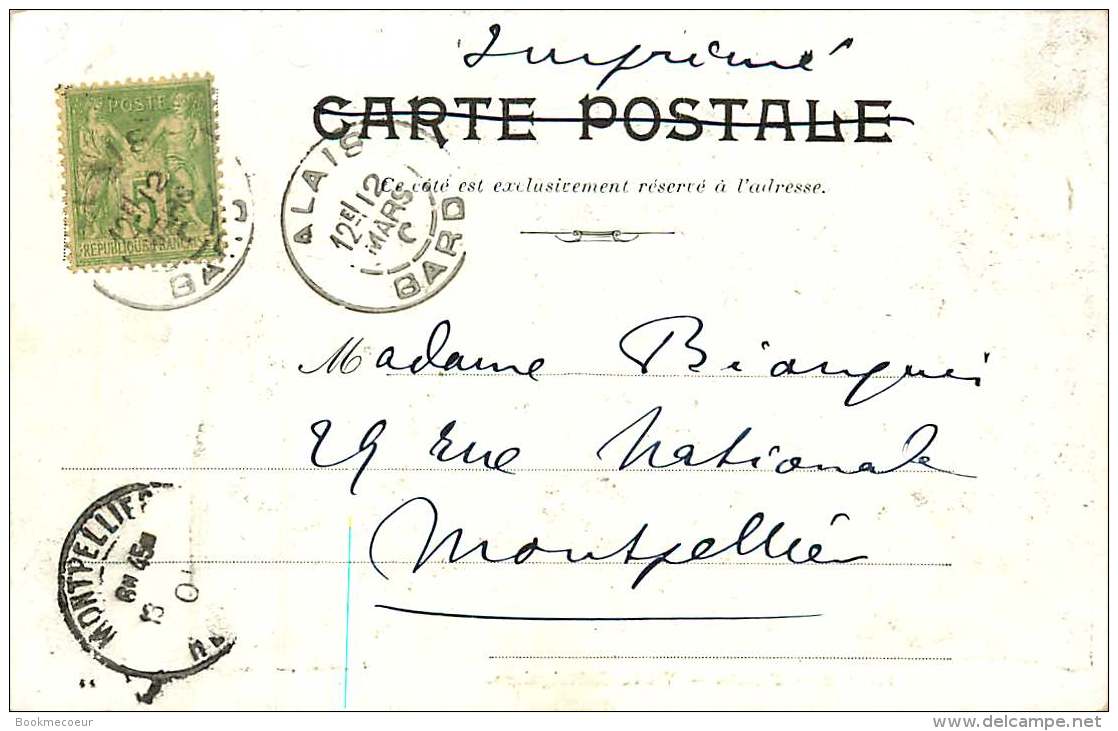 Imprimé
CARTE POSTALE
Ce côté est exclusivement réservé à l'adresse.
POSTE
5
REPUBLIQUE FRANCAISE
ALAIS
12E/ 12
MARS
BARD
Madame Bianquis
29 rue Nationale
Montpellier
MONTPELLIER
45
Bookmecoeur
www.delcampe.net